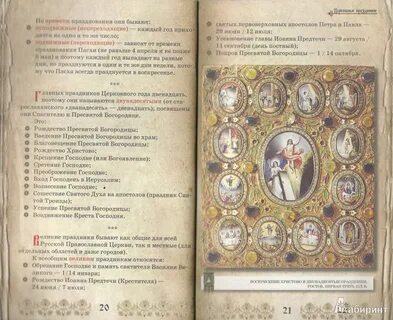 По времени праздновании они бывают:
неподвижные (непереходящие) — каждый год прихо-
дятся на одно и то же число;
подвижные (переходящие) — зависят от времени
празднования Пасхи (не ранее 4 апреля и не позже
8 мая) и поэтому каждый год выпадают на разные
числа, но празднуются в одни и те же дни недели, кото-
му что Пасха всегда приходится в воскресенье.
Главных праздников Церковного года двенадцать,
поэтому они называются двунадесятыми (от ста-
рославянского «дванадесять» — двенадцать), посвящены
они Спасителю и Пресвятой Богородице.
Это:
Рождество Пресвятой Богородицы;
Введение Пресвятой Богородицы во храм;
Благовещение Пресвятой Богородицы;
Рождество Христово;
Крещение Господне (или Богоявление);
Сретение Господне;
Преображение Господне;
Вход Господень в Иерусалим;
Вознесение Господне;
Сошествие Святого Духа на апостолов (праздник Свя-
той Троицы);
Успение Пресвятой Богородицы;
Воздвижение Креста Господня.
Великие праздники бывают как общие для всей
Русской Православной Церкви, так и местные (для
отдельных областей и даже городов).
К всеобщим великим праздникам относятся:
Обрезание Господне и память святителя Василия Ве-
ликого — 1/14 января;
Рождество Иоанна Предтечи (Крестителя) —
24 июня / 7 июля;
20
святых первоверховных апостолов Петра и Павла
29 июня / 12 июля;
Усекновение главы Иоанна Предтечи — 29 августа /
11 сентября (день постный);
Покров Пресвятой Богородицы — 1 / 14 октября.
ВОСКРЕСЕНИЕ ХРИСТОВО И ДВУНАДЕСЯТЫЕ ПРАЗДНИКИ.
21
Лабиринт